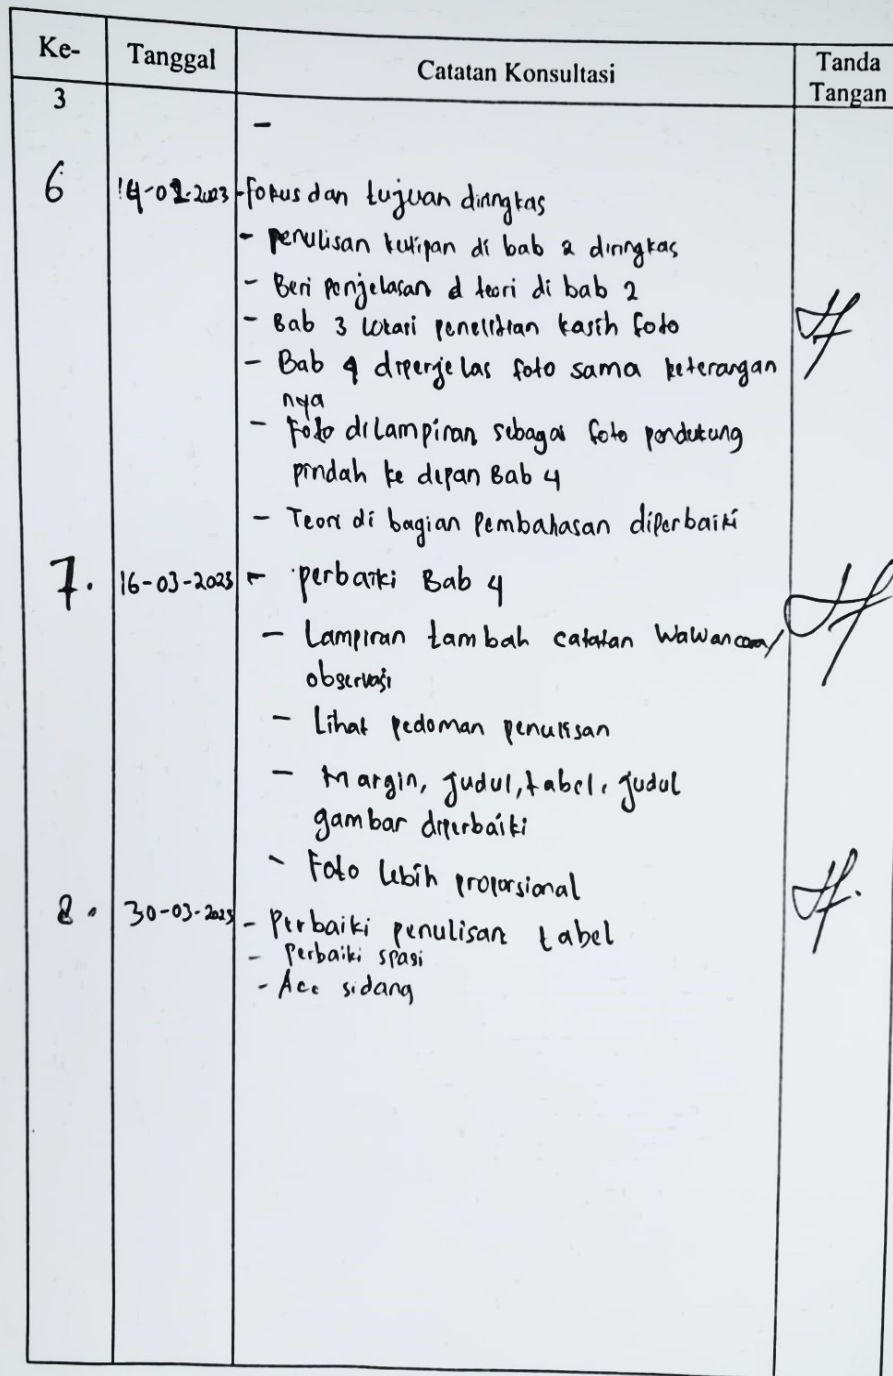 Ke- Tanggal Catatan Konsultasi Tanda Tangan
3
-
6 14-02-2023 - fokus dan tujuan diringkas
- penulisan kutipan di bab 2 diringkas
- Beri penjelasan d teori di bab 2
- Bab 3 lokasi penelitian kasih foto
- Bab 4 diperjelas foto sama keterangan
nya
- Foto dilampiran sebagai foto pendukung
pindah ke depan Bab 4
- Teori di bagian Pembahasan diperbaiki
7. 16-03-2023 - perbaiki Bab 4
- Lampiran tambah catatan wawancara/
observasi
- Lihat pedoman penulisan
- Margin, judul, tabel, judul
gambar diperbaiki
- Foto lebih proporsional
8. 30-03-2023 - Perbaiki penulisan tabel
- Perbaiki spasi
- Acc sidang